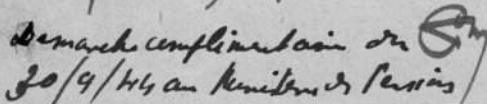 Demarche complimentaire du
30/9/44 au Ministere des Pensions